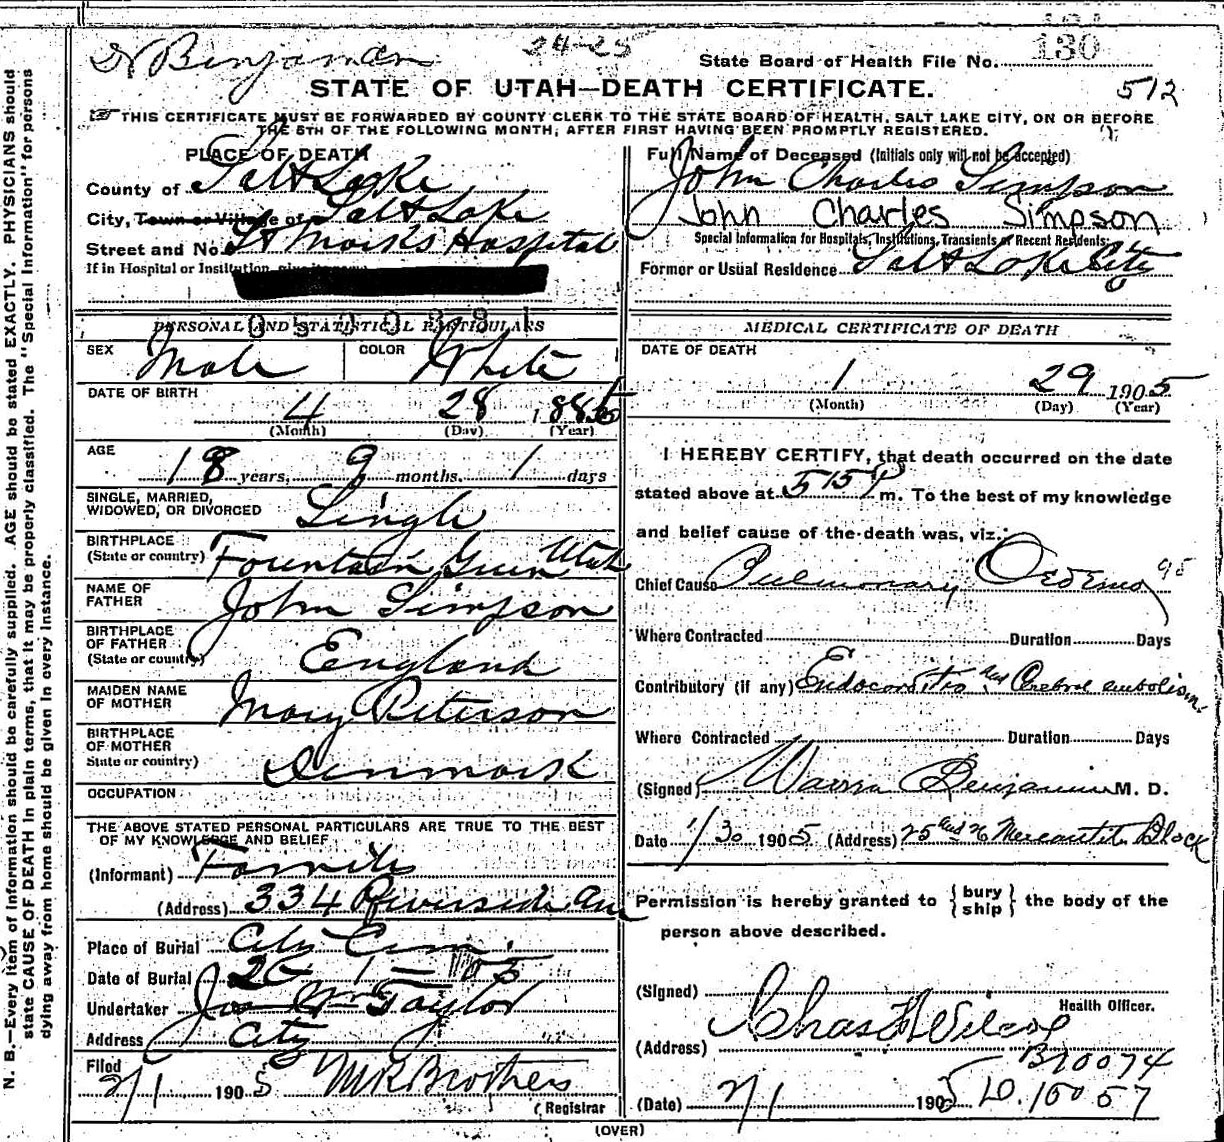 Dr Benjamin
24-25
State Board of Health File No. 130
STATE OF UTAH—DEATH CERTIFICATE.
512
THIS CERTIFICATE MUST BE FORWARDED BY COUNTY CLERK TO THE STATE BOARD OF HEALTH, SALT LAKE CITY, ON OR BEFORE
THE 5TH OF THE FOLLOWING MONTH, AFTER FIRST HAVING BEEN PROMPTLY REGISTERED.
PLACE OF DEATH
County of Salt Lake
City, Town or Village of Salt Lake
Street and No. St Mark's Hospital
If in Hospital or Institution,
0500381
PERSONAL AND STATISTICAL PARTICULARS
SEX Male COLOR White
DATE OF BIRTH
4 28 188
(Month) (Day) (Year)
AGE
18 years, 9 months. 1 days
SINGLE, MARRIED,
WIDOWED, OR DIVORCED Single
BIRTHPLACE
(State or country) Fountain Green Utah
NAME OF
FATHER John Simpson
BIRTHPLACE
OF FATHER
(State or country) England
MAIDEN NAME
OF MOTHER Mary Peterson
BIRTHPLACE
OF MOTHER
State or country) Denmark
OCCUPATION
THE ABOVE STATED PERSONAL PARTICULARS ARE TRUE TO THE BEST
OF MY KNOWLEDGE AND BELIEF
(Informant)
(Address) 334 Riverside Ave
Place of Burial City Cem.
Date of Burial 2 - 1 - 05
Undertaker Jos Wm Taylor
Address City
Filed
2/1 1905 M R Brothers
Registrar
Full Name of Deceased (Initials only will not be accepted)
John Charles Simpson
John Charles Simpson
Special Information for Hospitals, Institutions, Transients or Recent Residents.
Former or Usual Residence Salt Lake City
MEDICAL CERTIFICATE OF DEATH
DATE OF DEATH
1 29 1905
(Month) (Day) (Year)
I HEREBY CERTIFY, that death occurred on the date
stated above at 5 15 P m. To the best of my knowledge
and belief cause of the death was, viz.:
Chief Cause Pulmonary Oedema 95
Where Contracted Duration Days
Contributory (if any) Endocarditis and Cerebral embolism.
Where Contracted Duration Days
(Signed) Warren Benjamin M. D.
Date 1/30 1905 (Address) 25 and 26 Mercantile Block
Permission is hereby granted to { bury
ship } the body of the
person above described.
(Signed)
Health Officer.
Chas F Wilcox
(Address)
B10074
(Date) 2/1 1905 D. 10057
(OVER)
N. B.—Every item of information should be carefully supplied. AGE should be stated EXACTLY. PHYSICIANS should
state CAUSE OF DEATH in plain terms, that it may be properly classified. The "Special Information" for persons
dying away from home should be given in every instance.